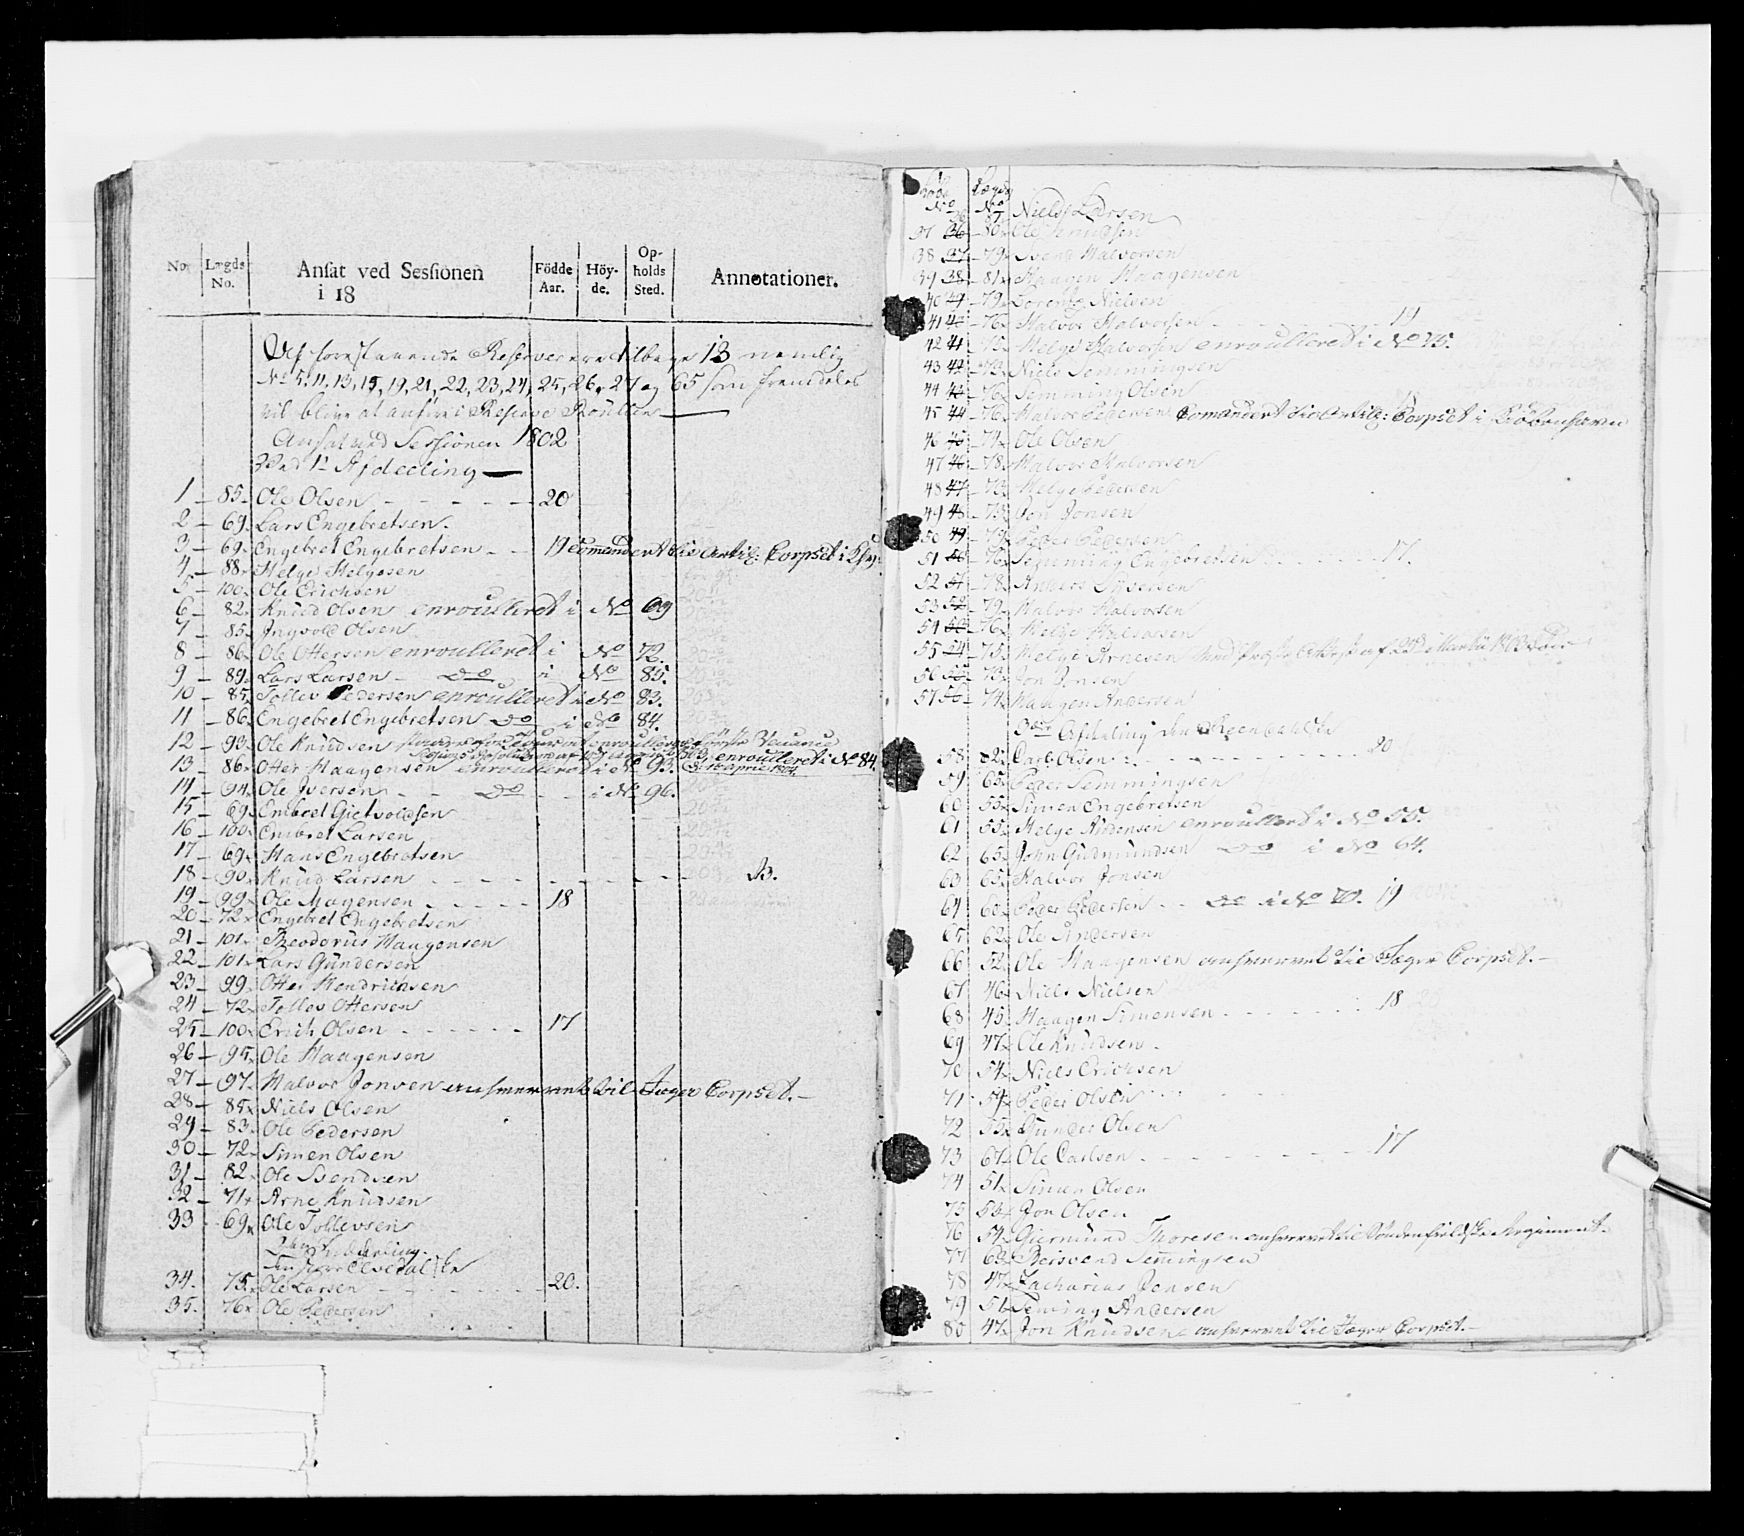 No. Lægds No. Ansat ved Sessionen i 18 Fødde Aar. Höy- de. Op- holds Sted. Annotationer.
Af forestaaende Reserver ere tilbage 13 nemlig
No 5, 11, 13, 15, 19, 21, 22, 23, 24, 25, 26, 27 og 65 som fremdeles
vil blive at anføre i Reserve Roullen
Ansat ved Sessionen 1802
Ved 1te Afdeeling
1 - 85. Ole Olsen - - - 20
2 - 69. Lars Engebretsen.
3. - 69. Engebret Engebretsen - - 19 Comandert til Artil: Corpset i
4 - 88. Helge Helgesen
5 - 100. Ole Erichsen
6 - 82. Knud Olsen enroulleret i No 69
7 - 85. Ingvold Olsen
8 - 86. Ole Ottersen enroulleret i No 72.
9 - 89. Lars Larsen - do i No 85.
10 - 87. Tollev Pedersen enroulleret i No 83.
11 - 86. Engebret Engebretsen do i No 84.
12 - 93. Ole Knudsen enroulleret i No 84.
13 - 86. Otter Haagensen enroulleret i No 93.
14 - 94. Ole Iversen - - do - - i No 96.
15 - 69. Embret Gietvoldsen
16 - 100. Embret Larsen
17 - 69. Hans Engebretsen
18 - 90. Knud Larsen - - - - -
19 - 99. Ole Magensen - - - - 18
20 - 72. Engebret Engebretsen
21 - 101. Theodorus Haagensen
22 - 101. Lars Gundersen
23 - 99. Otter Hendrichsen
24 - 72. Tollev Ottersen
25 - 100. Erich Olsen - - - - - 17
26 - 95. Ole Haagensen
27 - 97. Halvor Jonsen til Jæger Corpset.
28 - 85. Niels Olsen
29 - 83. Ole Pedersen
30 - 72. Simen Olsen
31 - 82. Ole Svendsen
32 - 71. Arne Knudsen
33 69. Ole Tollevsen
34. 75. Ole Larsen - - - - 20.
35. 76. Ole Pedersen
No No
36 87 Niels Larsen
37 36 - 80. Ole Knudsen
38 37 - 79. Svend Halvorsen
39 38 - 81. Haagen Haagensen
40 - 79. Lorentz Nielsen
41 40 - 76. Halvor Halvorsen - - - 19
42 41 - 75. Helge Halvorsen enroulleret i No 25.
43 42 - 73. Niels Semmingsen
44 43 - 76. Semming Olsen
45 44 - 76. Halvor Pedersen Comandert til Artil: Corpset i Kiøbenhavn
46 45 - 74. Ole Olsen
47 46 - 78. Halvor Halvorsen
48 47 - 73. Helge Pedersen
49 48 - 73. Jon Jonsen
50 49 - 77. Peder Pedersen
51 50 - 76. Semming Engebretsen - - - 17.
52 51 - 78. Anders Syversen
53 52 - 79. Halvor Halvorsen
54 53 - 76. Helge Halvorsen
55 54 - 75. Helge Arnesen
56 55 - 73. Jon Jonsen
57 56 - 74. Haagen Andersen
3die Afdeling
58 82. Carl Olsen - - - 20
59 65. Peder Semmingsen
60 55. Simen Engebretsen
61 55. Helge Andersen enroulleret i No 55.
62 65. John Gudmundsen do i No 64.
63 65. Halvor Jonsen
64 60. Peder Pedersen - - do i No 70. 19
65 62. Ole Andersen
66 52. Ole Haagensen til Jæger Corpset.
67 46. Niels Nielsen
68 45. Haagen Simensen - - - - 18
69 47. Ole Knudsen.
70 54. Niels Erichsen
71 54. Peder Olsen
72 53. Gunder Olsen
73 67. Ole Carlsen - - - - - 17
74 51. Simen Olsen
75 53. Jon Olsen
76 54. Giermund Thoresen til Søndenfieldske Regiment.
77 63. Reisvend Semingsen
78 47. Zacharias Jensen
79 51. Seming Andersen
80 47. Jon Knudsen til Jæger Corpset.